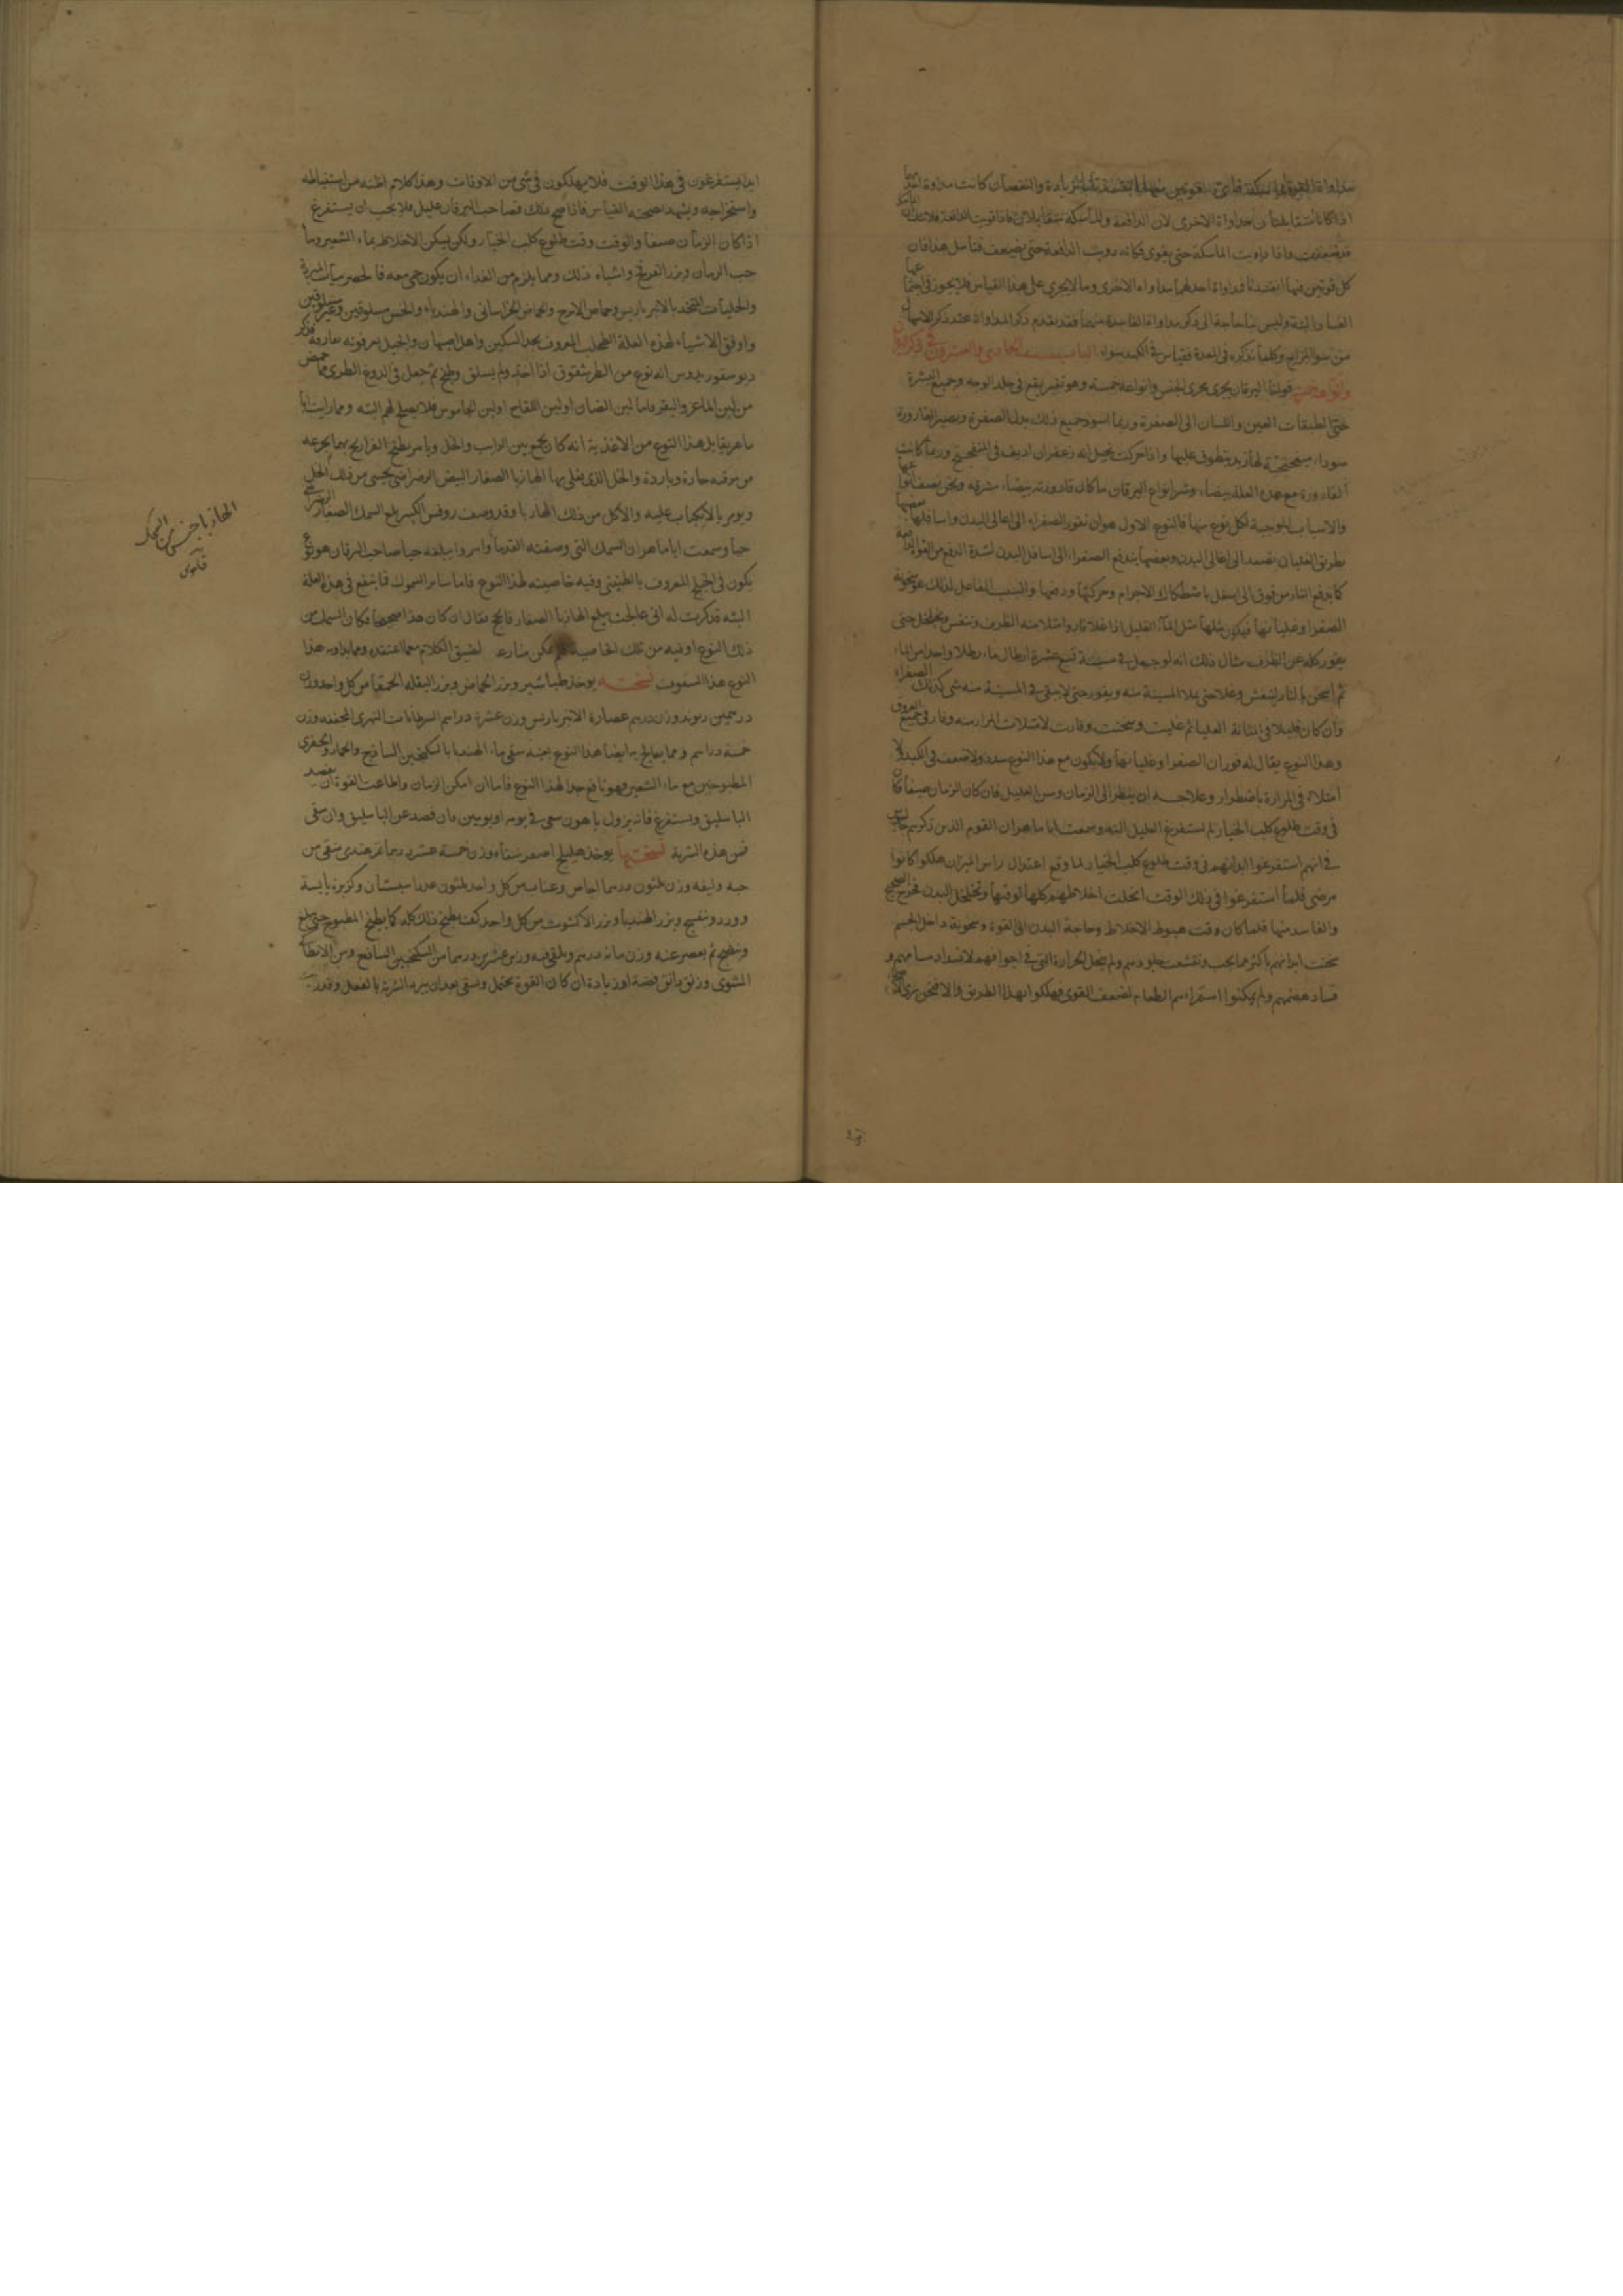 اذا كانا متقابلتان مداواة الاخرى لان الدافعة والماسكة متقابلان فاذا قويت الدافعة فلا بد ان
قد ضعفت واذا داويت الماسكة حتى يقوى فكانه دويت الدافعة حتى يضعف فتأمل هذا فان
كل قوتين منها فمداواة احدهما مداواة الاخرى وما لا يجرى على هذا القياس فلا يجوز
البتة وليس بنا حاجة الى ذكر مداواة الفاسدة منها فقد تقدم ذكر المداواة عند ذكر
من سوء المزاج وكلما نذكره فى المعدة فقياس فى الكبد سواء الباب الحادى والعشرون فى
وانواعه قولنا اليرقان يجرى مجرى الجنس وانواعه خمسة وهو تغير يقع فى جلد الوجه وجميع البشرة
حتى لطبقات العين واللسان الى الصفرة وربما اسود جميع ذلك بدل الصفرة ويصير القارورة
سوداء لها زبد يتطوق عليها واذا حركت تخيل انه زعفران اديف فى وربما كانت
القارورة مع هذه العلة بيضاء وشر انواع اليرقان ما كان قارورته بيضاء مشرقه ونحن نصف انواعها
والاسباب الموجبة لكل نوع منها فالنوع الاول هو ان تفور الصفراء الى اعالى البدن واسافلها
بطريق الغليان يصعد الى اعالى البدن وبعضها يندفع الصفراء الى اسافل البدن لشدة الدفع من
كما يدفع النار من فوق الى اسفل باصطكاك الاجرام وحركتها ودفعها والسبب الفاعل لذلك هو سخونة
الصفراء وغليانها فيكون مثلها مثل الماء القليل اذا غلا فار وامتلا منه الظرف وتنفس وتخلخل حتى
يفور كله عن الظرف مثال ذلك انه لو جعل فى تسع عشرة ارطال ماء رطلا واحدا من الماء
ثم اسخن بالنار لتنفش وغلا حتى يملا منه ويفور حتى لا يبقى فى منه شى كذلك الصفراء
وان كان قليلا فى المثانة العليا ثم غليت وسخنت وفارت لامتلات المرارة منه وفار فى جميع العروق
وهذا النوع يقال له فوران الصفراء وغليانها ولا يكون مع هذا النوع سدد ولا ضعف فى الكبد ولا
امتلاء فى المرارة باضطرار وعلاجه ان ينظر الى الزمان وسن العليل فان كان الزمان صيفا
فى وقت طلوع كلب الجبار لم تستفرغ العليل البتة وسمعت ابا ماهر ان القوم الذين ذكرهم جالينوس
فى انهم استفرغوا ابدانهم فى وقت طلوع كلب الجبار لما وقع اعتدال راس الميزان هلكوا كانوا
مرضى فلما استفرغوا فى ذلك الوقت انحلت اخلاطهم كلها لوقتها وتخلخل البدن فخرج الصحيح
والفاسد منها فلما كان وقت هبوط الاخلاط وحاجة البدن الى القوة وسخونة داخل الجسم
سخنت ابدانهم باكثر مما يجب وتقشفت جلودهم ولم ينحل الحرارة التى فى اجوافهم لانسداد مسامهم و
فساد هضمهم ولم يمكنوا استمراءهم الطعام لضعف القوى فهلكوا بهذا الطريق والا فنحن نرى
يستفرغون فى هذا الوقت فلا يهلكون فى شى من الاوقات وهذا كلام اظنه من استنباطه
واستخراجه ويشهد لصحته القياس فاذا صح ذلك فصاحب اليرقان عليل فلا يجب ان يستفرغ
اذا كان الزمان صيفا والوقت وقت طلوع كلب الجبار ولكن يسكن الاخلاط بماء الشعير وماء
حب الرمان وبزر الفرفخ واشباه ذلك ومما يلزم من الغذاء ان يكون حمى معه فالحصرميات المبردة
والخليات المتخذ بالانبرباريس وحماض الاترج والحماض الخراسانى والهندباء والخس مسلوقين وغير مسلوقين
واوفق الاشياء لهذه العلة الطحلب المعروف واهل اصبهان والجبل يعرفونه
انه نوع من اذا اخذ ولم يسلق وطبخ ثم جعل فى الدوغ الطرى
من لبن الماعز والبقر واما لبن الضان او لبن اللقاح او لبن الجاموس فلا يصلح لهم البته ومما رايت ابا
ماهر يقابل هذا النوع من الاغذية انه كان يجمع بين الرايب والخل ويامر بطبخ الفراريج بهما يجرعه
من مرقه حارة وباردة والخل الذى يغلى بها الهازبا الصغار البيض الرضراضى يحسى من ذلك الخل
ويومر بالانكباب عليه والاكل من ذلك الهازبا وقد وصف روفس الكبير بلع السمك الصغار
حيا وسمعت ابا ماهر ان السمك التى وصفته القدما وامروا ببلعه حيا صاحب اليرقان هو نوع
يكون فى الخليج المعروف وفيه خاصيته لهذا النوع فاما سائر السموك فما ينفع فى هذه العلة
البته فذكرت له انى عالجت ببلع الهازبا الصغار فانجح فقال ان كان هذا صحيحا فكان السمك من
ذلك النوع او فيه من تلك الخاصية لضيق الكلام معما اعتقده ومما يداوى به هذا
النوع هذا السفوف نسخته يوخذ طباشير وبزر الحماض وبزر البقلة الحمقا من كل واحد وزن
درهمين ريوند وزن درهم عصارة الانبرباريس وزن عشرة دراهم السرطانات النهرى المجففه وزن
خمسة دراهم ومما يعالج به ايضا هذا النوع بعينه سقى ماء الهندبا بالسكنجبين الساذج
المطبوخين مع ماء الشعير فهو نافع جدا لهذا النوع فاما ان امكن الزمان واطاعت القوة ان يفصد
الباسليق ويستفرغ فانه يزول باهون سعى فى يوم او يومين وان فصد عن الباسليق وان سقى
فمن هذه الشربة نسختها يوخذ هليلج اصفر منقا وزن خمسة عشر درهما تمر هندى منقى من
حبه وليفه وزن ثلثون درهما اجاص وعناب من كل واحد ثلثون عددا سبستان وكزبره يابسة
وورد وبنفسج وبزر الهندبا وبزر الاكشوث من كل واحد كف يطبخ ذلك كله كما يطبخ المطبوخ حتى
وينضج ثم يعصر عنه وزن مائة درهم ويلقى فيه وزن عشرين درهما من السكنجبين الساذج ومن
المشوى وزن دانق فضة او زيادة ان كان القوة يحتمل ويسقى بعد ان يبرد الشربة بالفعل وقدر
الهازبا جنس من السمك